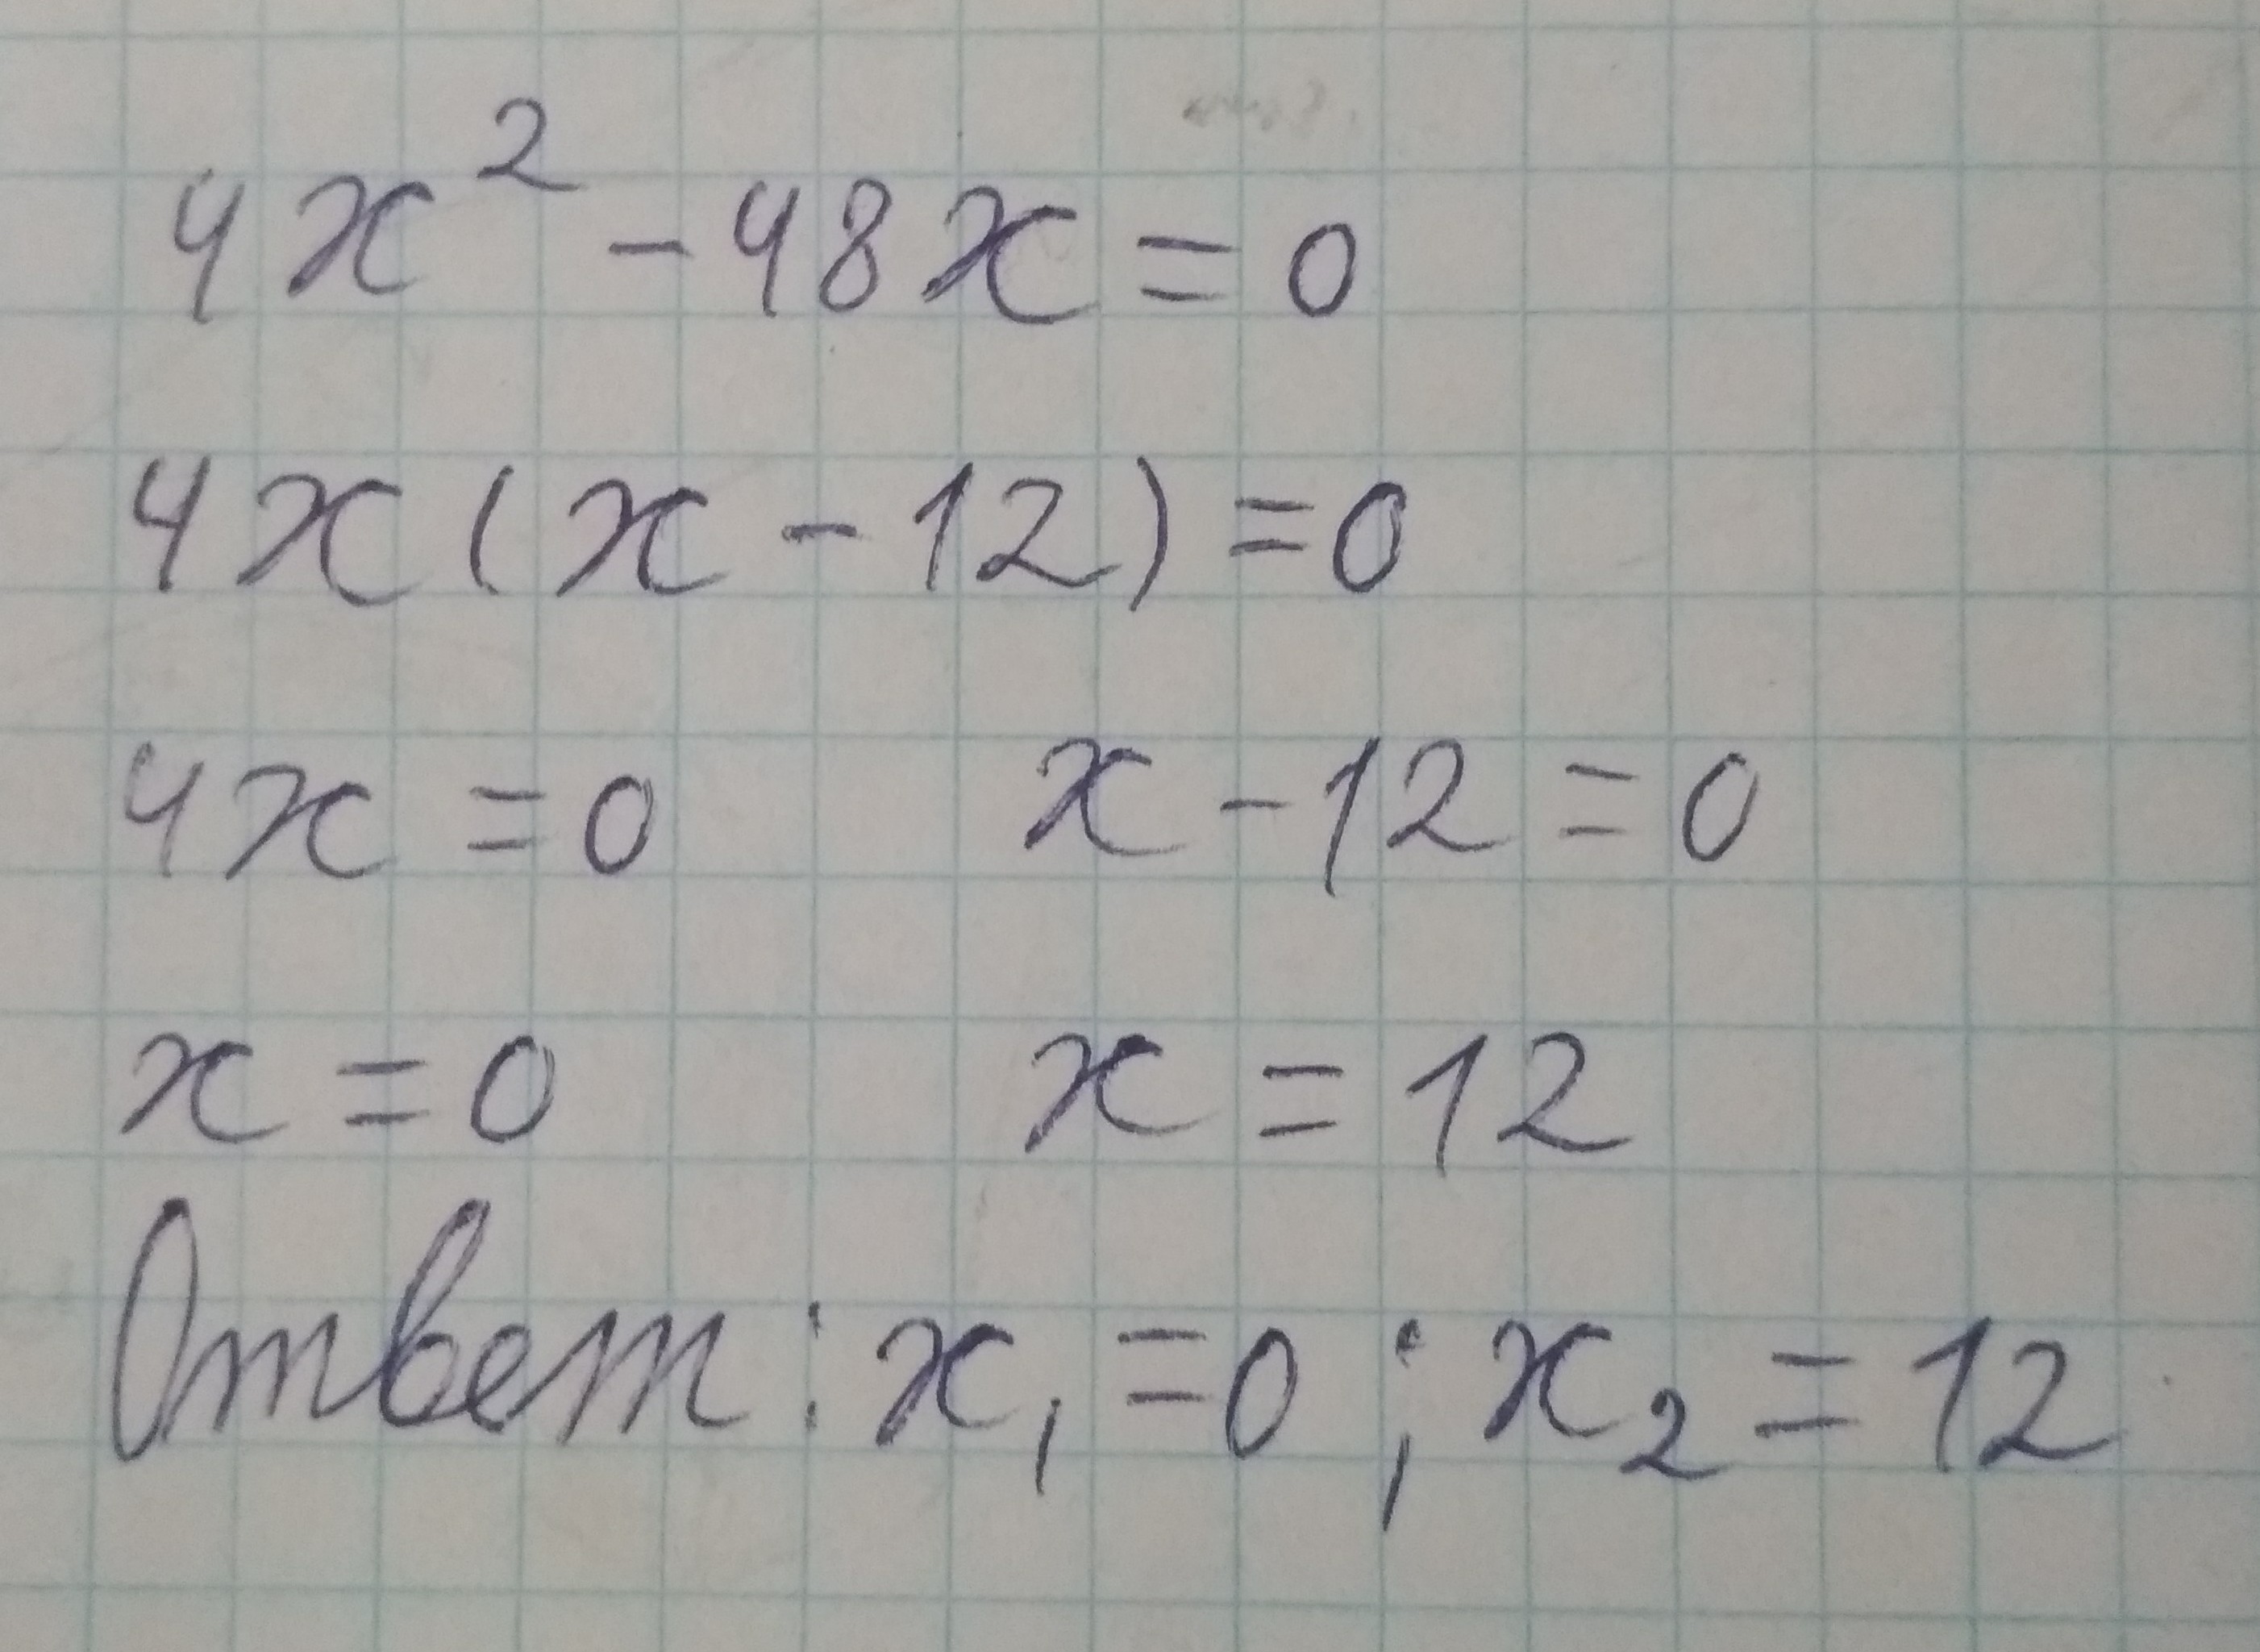 4x² - 48x = 0
4x(x - 12) = 0
4x = 0 x - 12 = 0
x = 0 x = 12
Ответ: x₁ = 0; x₂ = 12